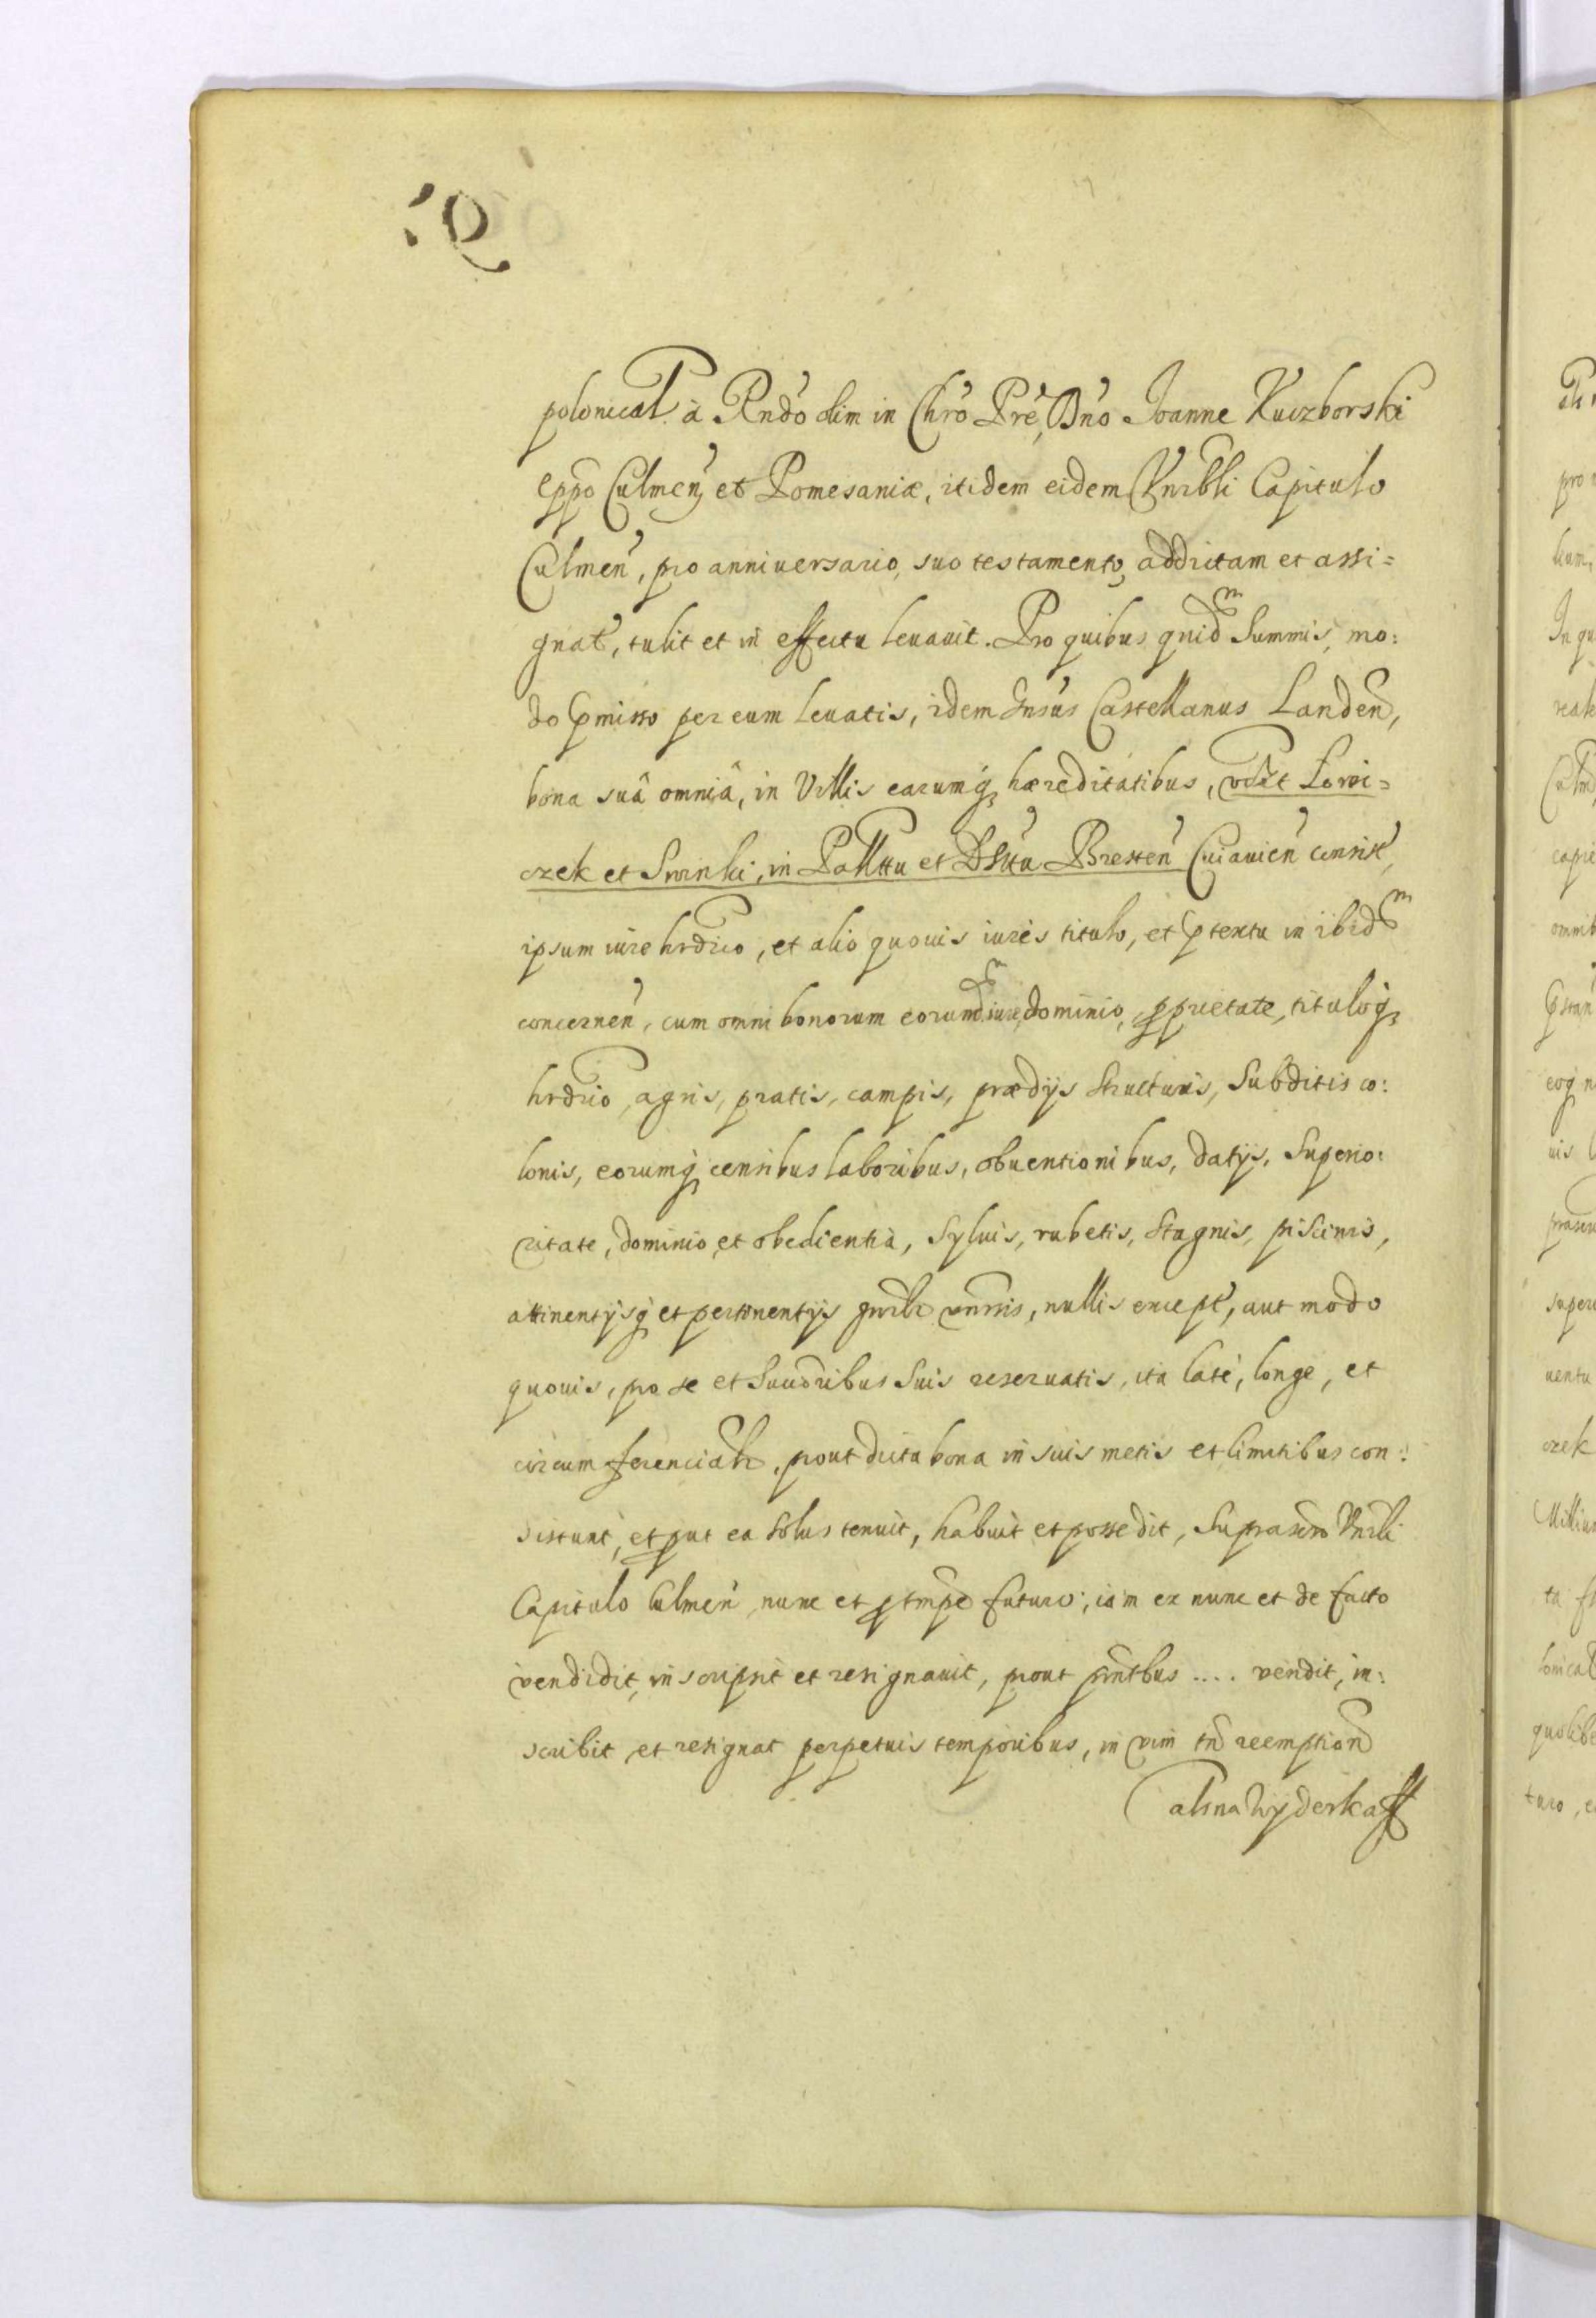 polonical. à Rndo olim in Chro Pre, Dno Ioanne Kuczborski
Eppo Culmen et Pomesaniæ, itidem eidem Vnrbli Capitulo
Culmen, pro anniversario, suo testamento, addictam et assi=
gnat, tulit et in effectu levavit. Pro quibus quid͂m Summis, mo:
do pmisso per eum levatis, idem Gnsus Castellanus Landen,
bona suâ omniâ, in Villis earumq hæreditatibus, vdzt Lowi=
czek et Swinki, in Pallttu et Dsttu Bresten Cuiavien consist,
ipsum iure hrdrio, et alio quovis iuris titulo, et ptextu in ibidm
concernen, cum omni bonorum eorundm iure, dominio, pprietate, tituloq
hrdrio, agris, pratis, campis, prædijs Structuris, Subditis co:
lonis, eorumq censibus laboribus, obventionibus, datijs, Superio:
ritate, dominio, et obedientia, Sylvis, rubetis, Stagnis, piscinis,
attinentijsq et pertinentijs gnrlr vnrsis, nullis except, aut modo
quovis, pro se et Succoribus Suis reservatis, ita latè, longe, et
circumferencialr, prout dicta bona in suis metis et limitibus con:
sistunt, et put ea Solus tenuit, habuit et possedit, Suprascro Vnrbli
Capitulo Culmen, nunc et p tmpe futuro, iam ex nunc et de facto
vendidit, inscripsit et resignavit, prout pntbus .... vendit, in:
scribit et resignat perpetuis temporibus, in vim tn reemption
als na wyderkaff